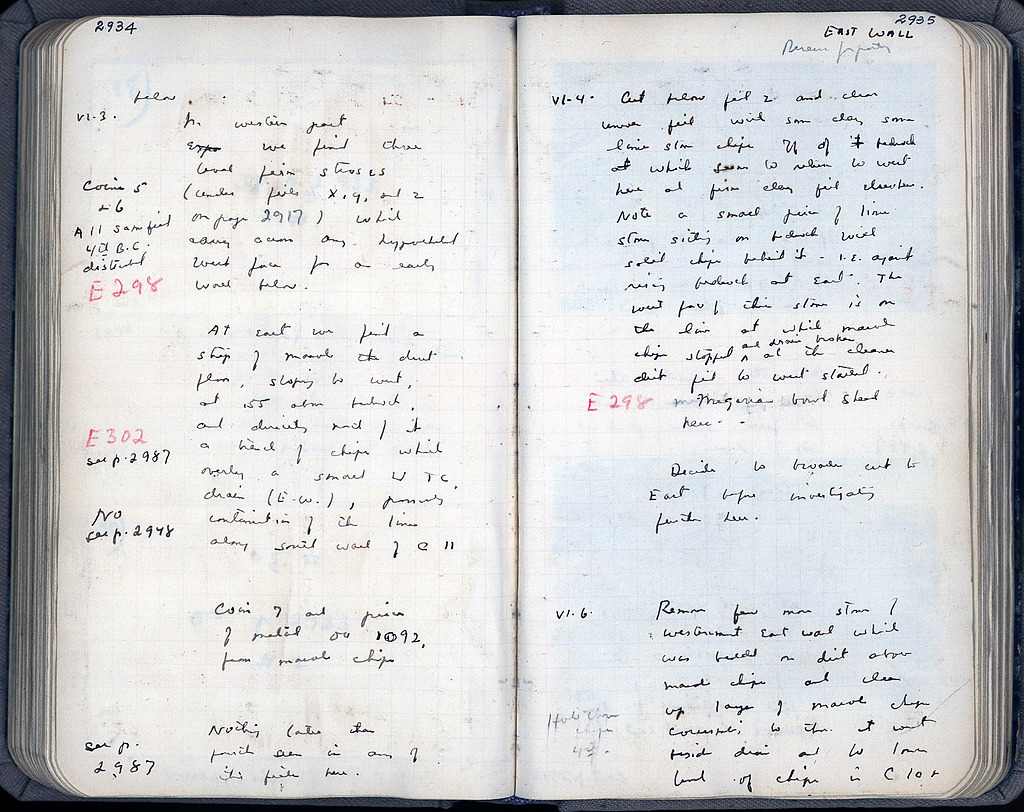 2934
below
VI-3.
In western part
we find three
level firm stroses
(under fills X, 9, and 2
on page 2917) which
carry across any hypothetical
west face for an early
wall below.
Coins 5
+ 6
All same fill
4th B.C.
disturbed
E 298
At East we find a
strip of marble dust
floor, sloping to west,
at .55 above bedrock,
and directly north of it
a band of chips which
overlay a small W TC,
drain (E-W.), possibly
continuation of the line
along south wall of C 11
E302
see p. 2987
No
see p. 2948
Coin 7 and piece
of metal 1092,
from marble chips
Nothing later than
fourth seen in any of
the fills here.
see p.
2987
2935
EAST WALL
VI-4. Cut below fill 2 and clear
fill with some clay some
lime stone chips of bedrock
at which seem to return to west
here at firm clay fill elsewhere.
Note a small piece of lime
stone sitting on bedrock with
solid chips behind it - I.E. against
rising bedrock at East. The
west face of this stone is on
the line at which marble
chips stopped and drain broken at the cleaner
dirt fill to west started.
E 298 Megarian bowl sherd
here.
Decide to broaden cut to
East before investigating
further here.
VI-6. Remove few more stones of
westernmost East wall which
was bedded on dirt above
marble chips and clear
up layer of marble chips
corresponding to that at west
beside drain and to lower
level of chips in C 10 +